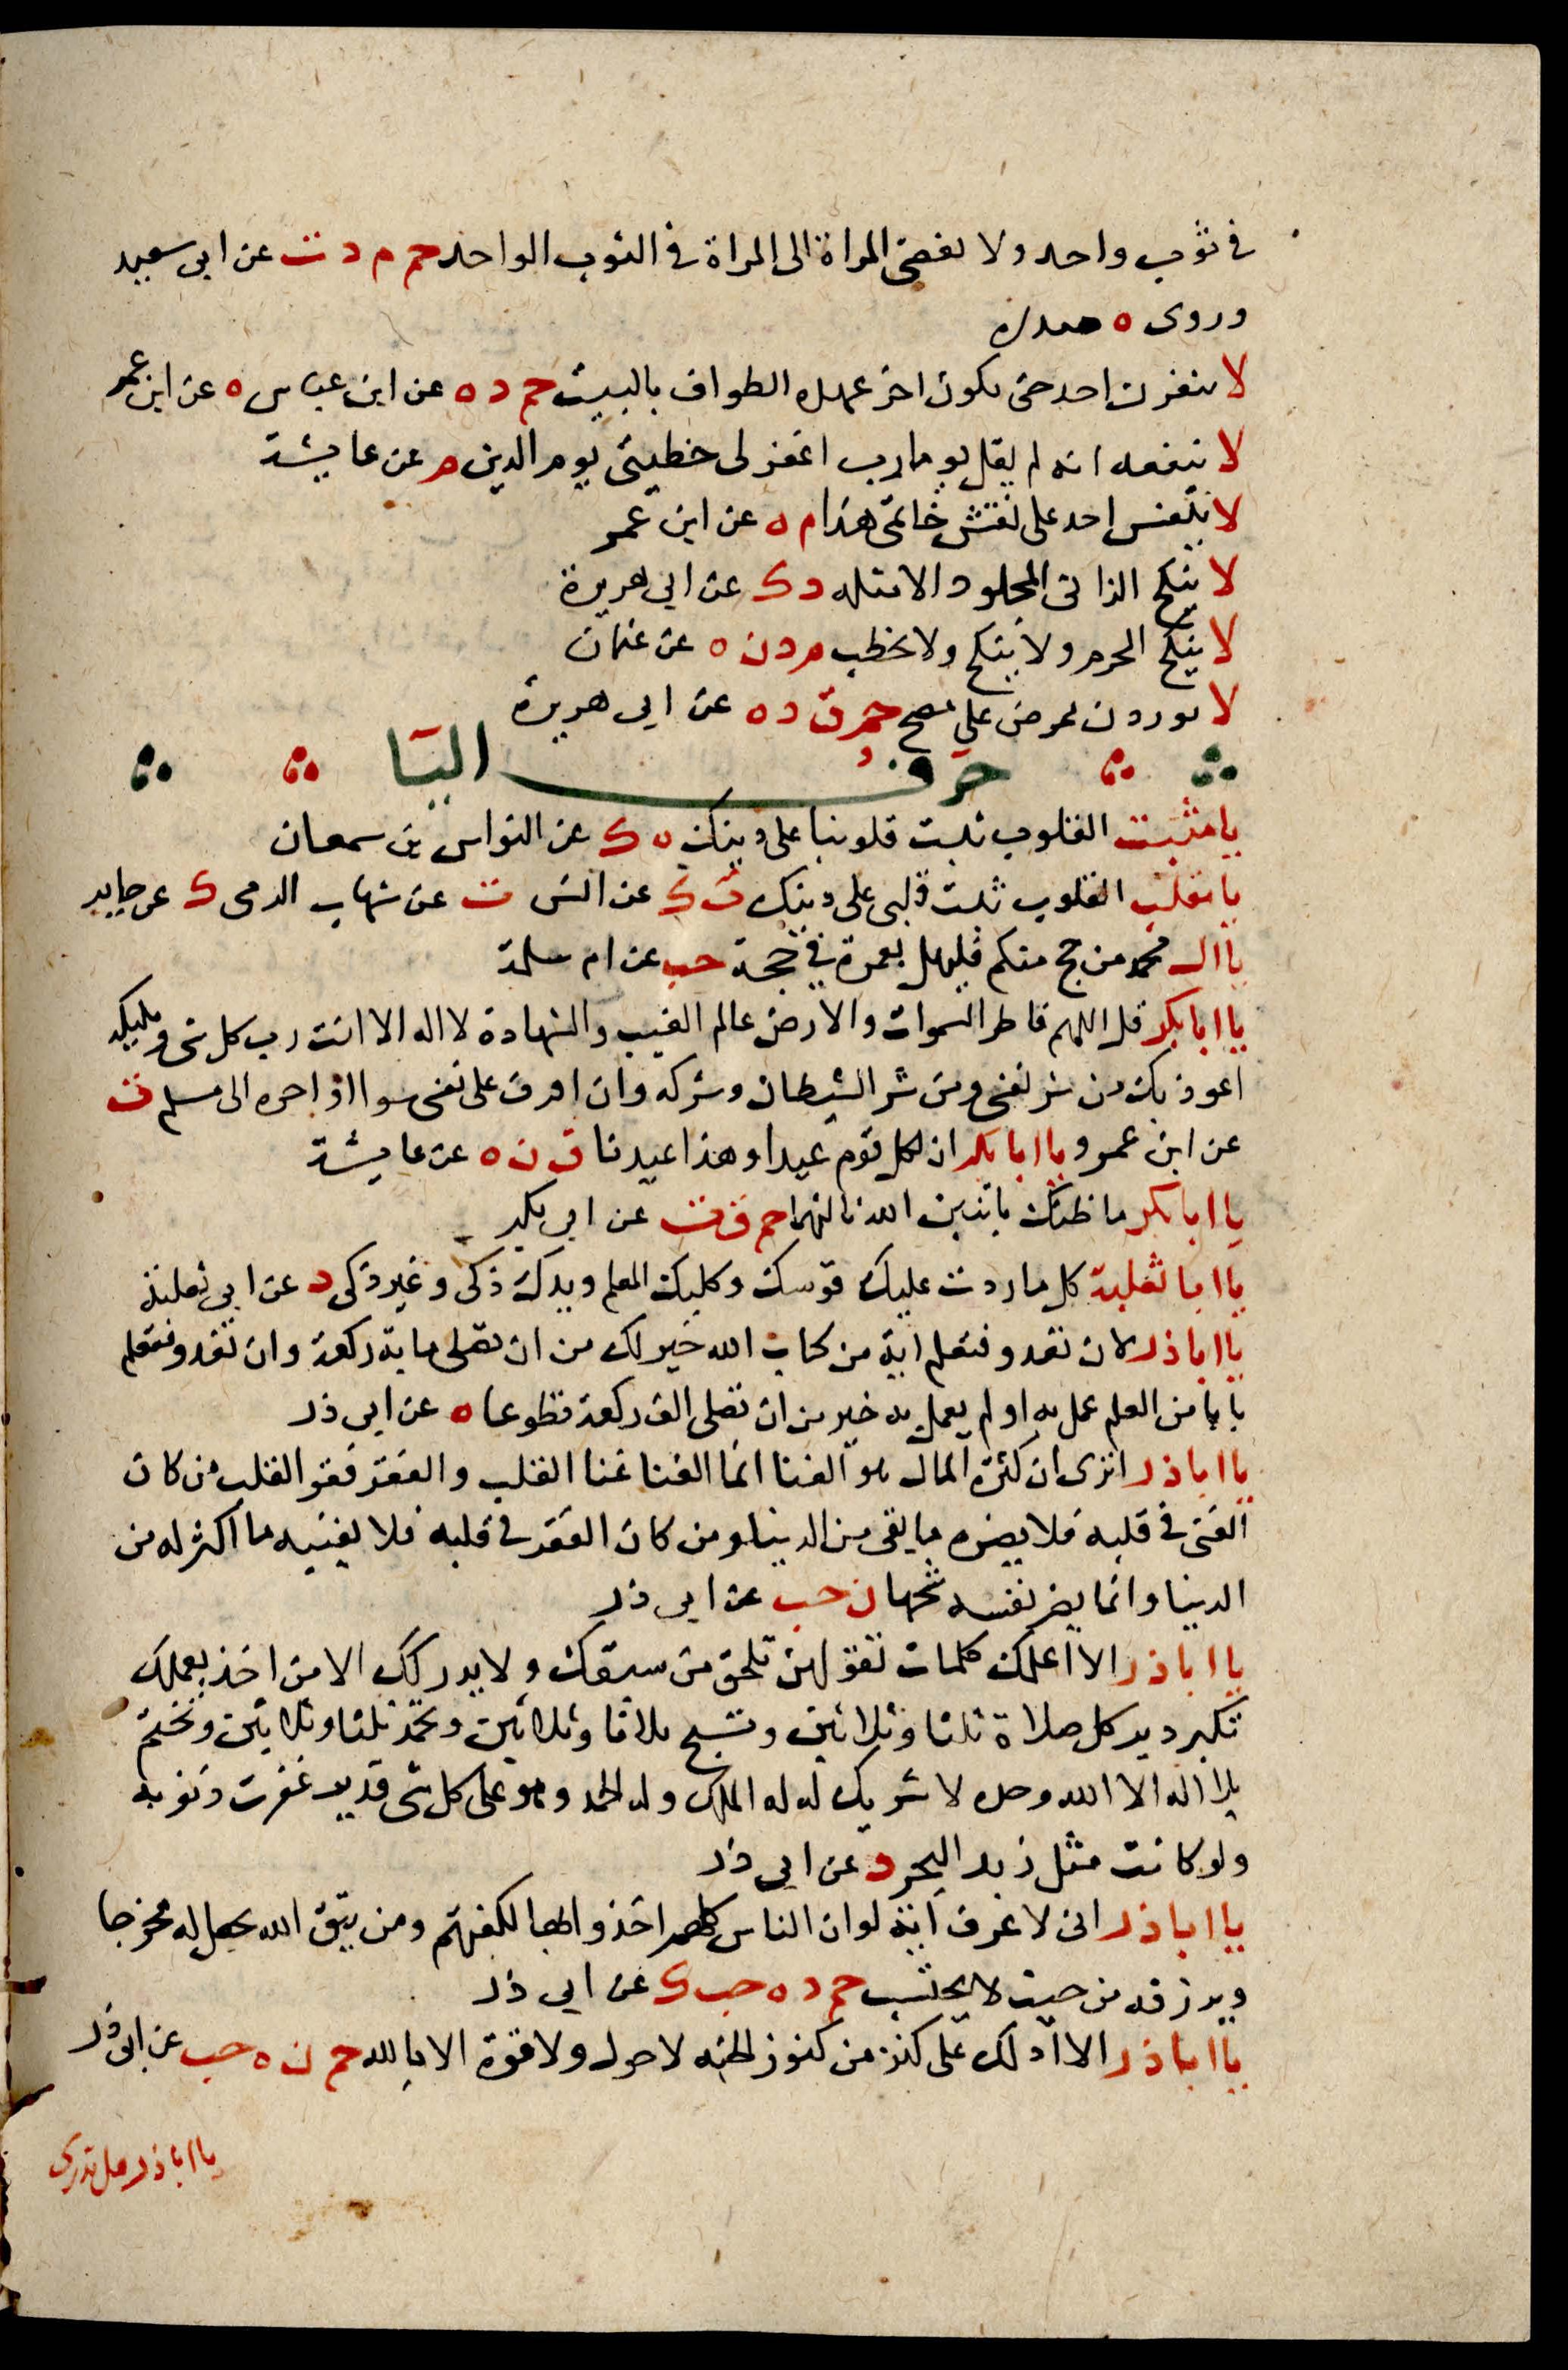 في ثوب واحد ولا تفضي المراة الى المراة في الثوب الواحد حم م د ت عن ابي سعيد
وروى ه صدره
لا ينفرن احد حتى يكون اخر عهده الطواف بالبيت حم د ه عن ابن عباس ه عن ابن عمر
لا ينفعه انه لم يقل يوما رب اغفر لي خطيئتي يوم الدين م عن عايشة
لا ينقش احد على نقش خاتمي هذا م ه عن ابن عمر
لا ينكح الزاني المجلود الا مثله د ك عن ابي هريرة
لا ينكح المحرم ولا ينكح ولا يخطب م د ن ه عن عثمان
لا يوردن ممرض على مصح حم ق د ه عن ابي هريرة
حرف اليا
يا مثبت القلوب ثبت قلوبنا على دينك ه ك عن النواس بن سمعان
يا مقلب القلوب ثبت قلبي على دينك ت ك عن انس ت عن شهاب الجرمي ك عن جابر
يا ال محمد من حج منكم فليهل بعمرة في حجة حب عن ام سلمة
يا ابا بكر قل اللهم فاطر السموات والارض عالم الغيب والشهادة لا اله الا انت رب كل شي ومليكه
اعوذ بك من شر نفسي ومن شر الشيطان وشركه وان اقرف على نفسي سوا او اجره الى مسلم ت
عن ابن عمرو يا ابا بكر ان لكل قوم عيدا وهذا عيدنا ق ن ه عن عايشة
يا ابا بكر ما ظنك باثنين الله ثالثهما حم ق ت عن ابي بكر
يا ابا ثعلبة كل ما ردت عليك قوسك وكلبك المعلم ويدك ذكي وغير ذكي د عن ابي ثعلبة
يا ابا ذر لان تغدو فتعلم اية من كتاب الله خير لك من ان تصلي ماية ركعة وان تغدو فتعلم
بابا من العلم عمل به او لم يعمل به خير من ان تصلي الف ركعة تطوعا ه عن ابي ذر
يا ابا ذر اترى ان كثرة المال هو الغنا انما الغنا غنا القلب والفقر فقر القلب من كان
الغنى في قلبه فلا يضره ما يقي من الدنيا ومن كان الفقر في قلبه فلا يغنيه ما اكثر له من
الدنيا وانما يضر نفسه شحها ن حب عن ابي ذر
يا ابا ذر الا اعلمك كلمات تقولهن تلحق من سبقك ولا يدركك الا من اخذ بعملك
تكبر دبر كل صلاة ثلثا وثلاثين وتسبح ثلاثا وثلاثين وتحمد ثلثا وثلاثين وتختم
بلا اله الا الله وحده لا شريك له له الملك وله الحمد وهو على كل شي قدير غفرت ذنوبه
ولو كانت مثل زبد البحر د عن ابي ذر
يا ابا ذر اني لا عرف اية لو ان الناس كلهم اخذوا بها لكفتهم ومن يتق الله يجعل له مخرجا
ويرزقه من حيث لا يحتسب حم د ه حب ك عن ابي ذر
يا ابا ذر الا ادلك على كنز من كنوز الجنه لا حول ولا قوة الا بالله حم ن ه حب عن ابي ذر
يا ابا ذر هل تدري